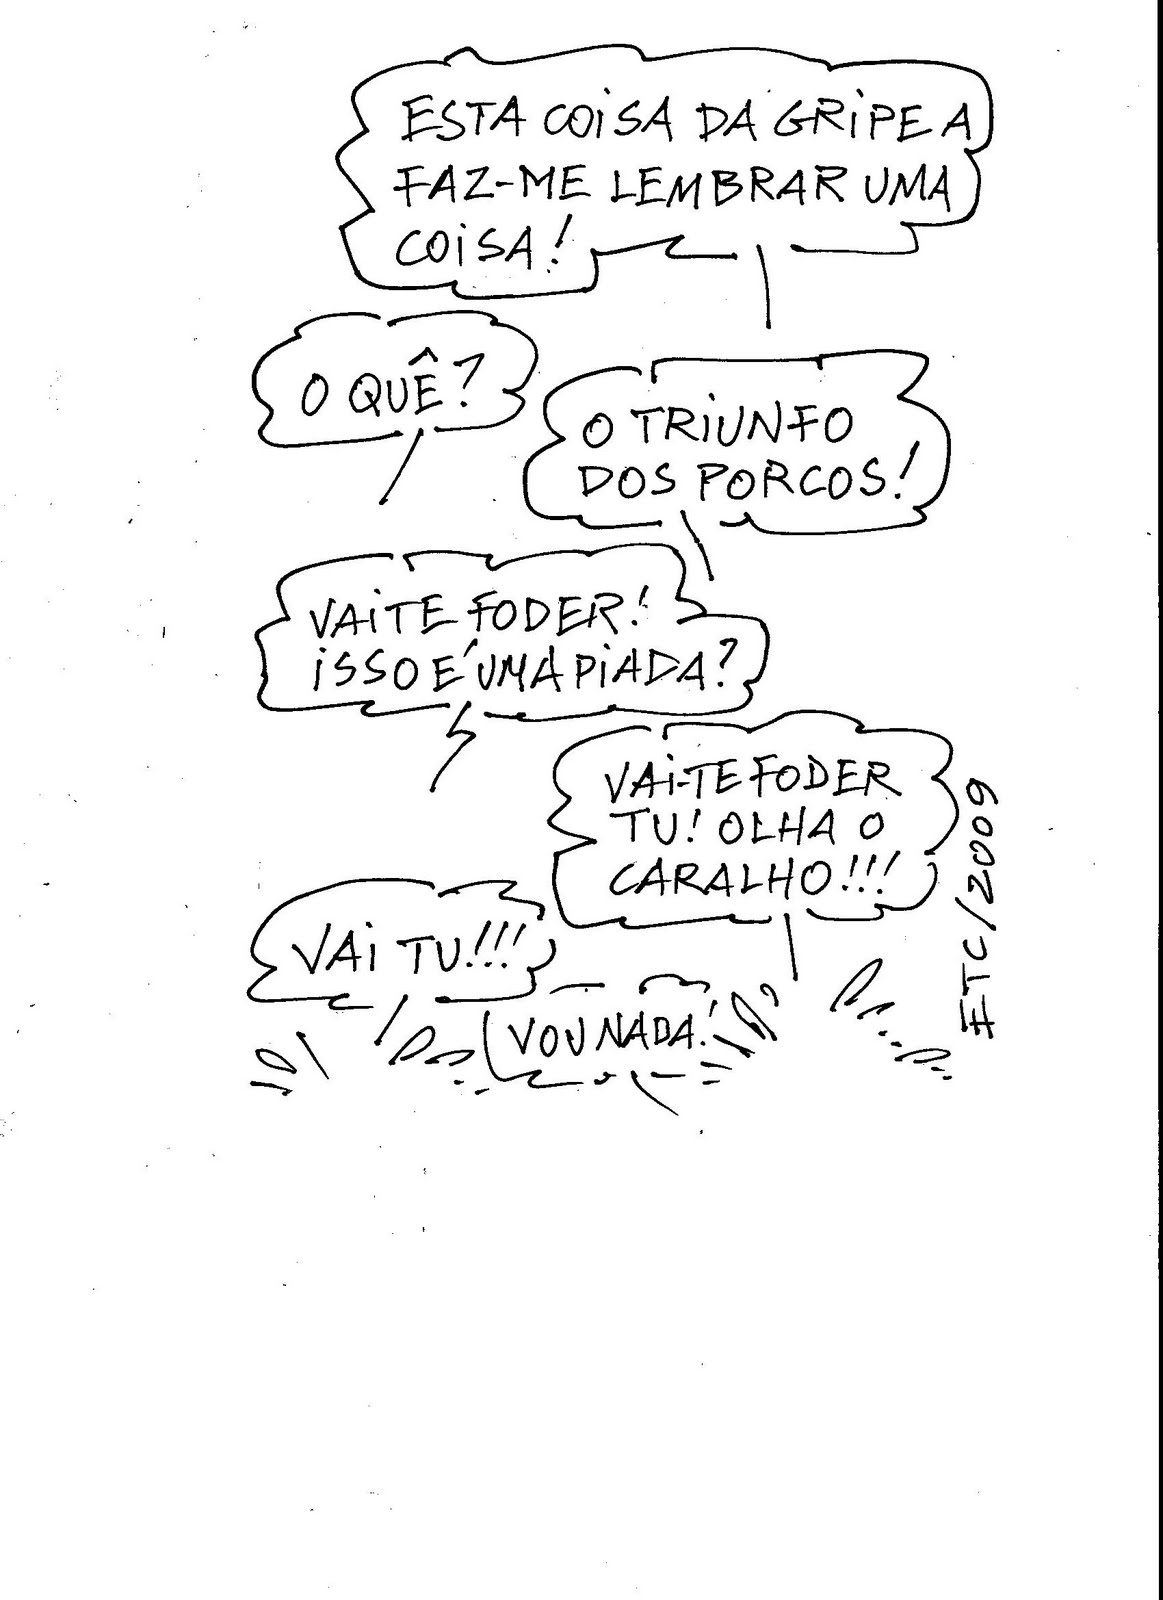 ESTA COISA DA GRIPE A
FAZ-ME LEMBRAR UMA
COISA!
O QUÊ?
O TRIUNFO
DOS PORCOS!
VAI TE FODER!
ISSO É UMA PIADA?
VAI-TE FODER
TU! OLHA O
CARALHO!!!
VAI TU!!!
VOU NADA!
ETC/2009